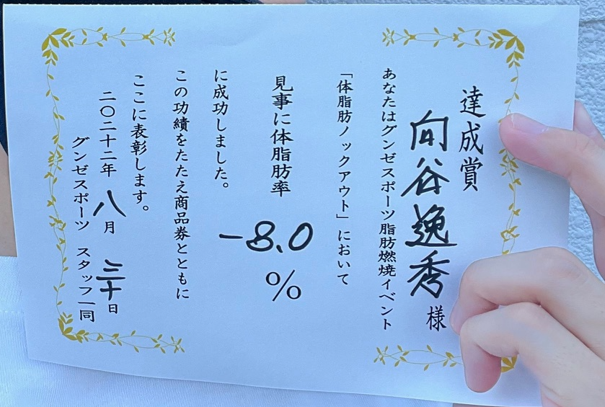 達成賞
向谷逸秀様
あなたはグンゼスポーツ脂肪燃焼イベント
「体脂肪ノックアウト」において
見事に体脂肪率
-8.0%
に成功しました。
この功績をたたえ商品券とともに
ここに表彰します。
二〇二十二年八月三十日
グンゼスポーツ スタッフ一同